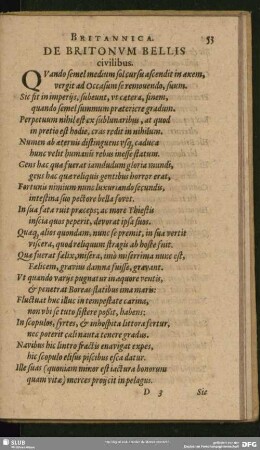 BRITANNICA. 53
DE BRITONVM BELLIS
civilibus.
QVando semel medium sol cursu ascendit in axem,
vergit ad Occasum se removendo, suum.
Sic sit in imperijs, subeunt, vt cætera, finem,
quando semel summum præteriere gradum.
Perpetuum nihil est ex sublunaribus, at quod
in pretio est hodie, cras redit in nihilum.
Numen ab æternis distinguens vsq; caduca
hunc velit humanis rebus inesse statum.
Gens hac quæ fuerat iamdudum gloria mundi,
gens hac quæ reliquis gentibus horror erat,
Fortunis nimium nunc luxuriando secundis,
intestina suo pectore bella fovet.
In sua fata ruit præceps, ac more Thiestis
inscia quos peperit, devorat ipsa suos.
Quæq; alios quondam, nunc se premit, in sua vertit
viscera, quod reliquum stragis ab hoste fuit.
Quæ fuerat fœlix, misera, imò miserrima nunc est,
Fœlicem, gravius damna fuisse, gravant.
Vt quando varijs pugnatur in æquore ventis,
& penetrat Boreas flatibus ima maris:
Fluctuat huc illuc in tempestate carina,
non vbi se tutò sistere possit, habens;
In scopulos, syrtes, & inhospita littora fertur,
nec poterit calinanta tenere gradus.
Navibus hic lintro fractis enavigat expes,
hic scopulo elisus piscibus esca datur.
Ille suas (quoniam minor est iactura bonorum
quam vitæ) merces proijcit in pelagus.
D 3 Sic
SLUB
DFG